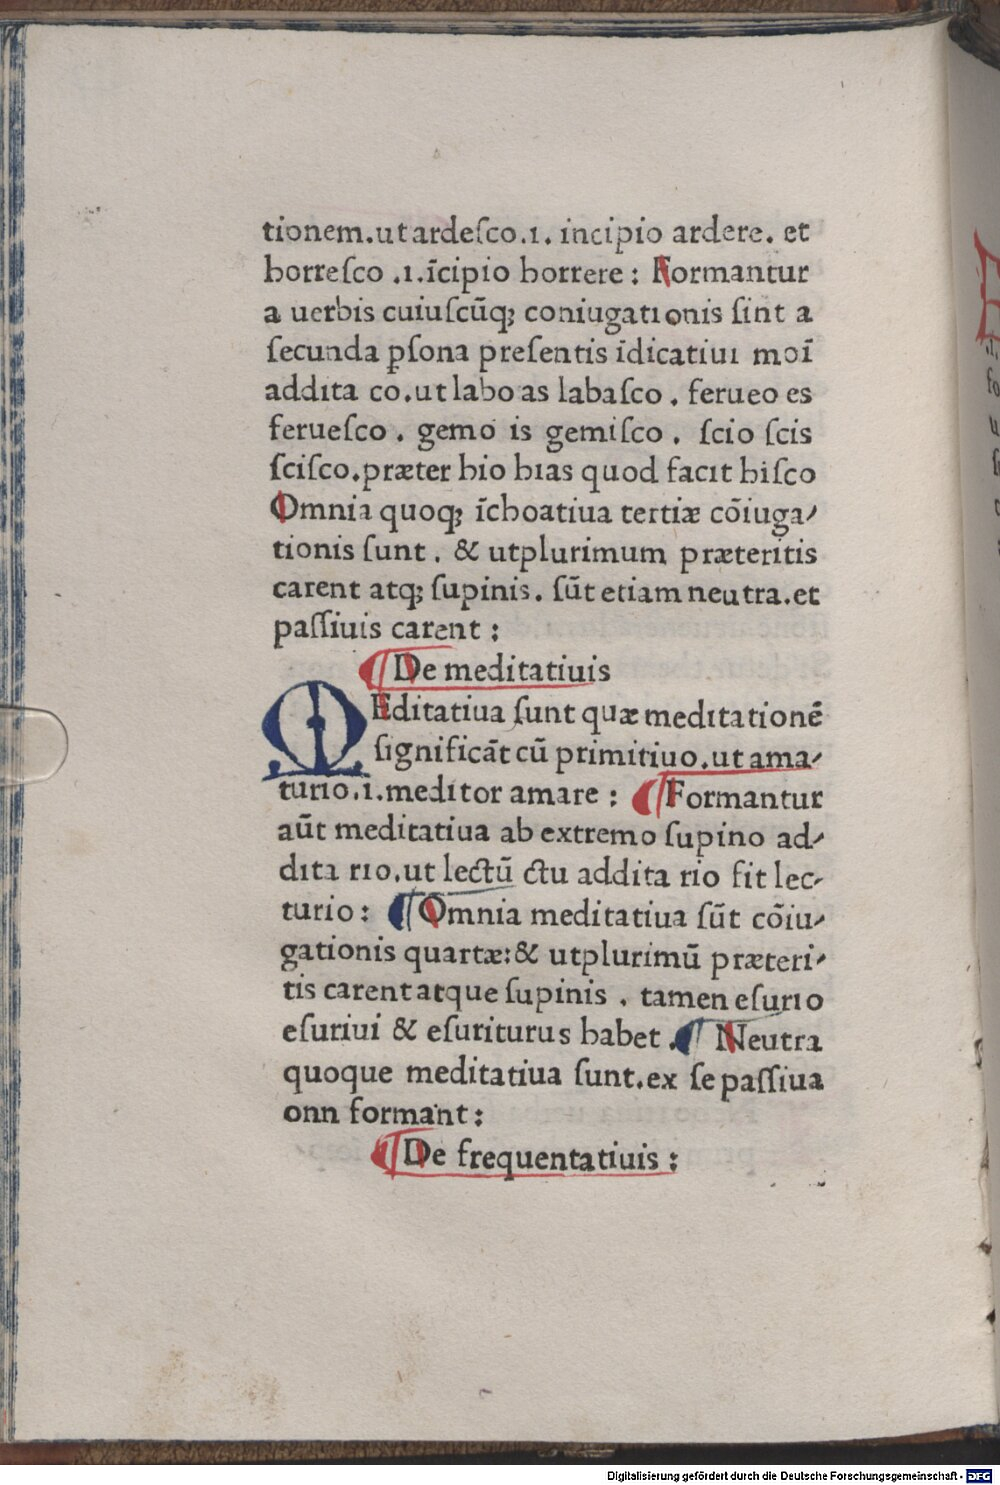 tionem.ut ardeſco.ı. incipio ardere. et
horreſco .ı.īcipio horrere : Formantur
a uerbis cuiuſcūq; coniugationis ſint a
ſecunda pſona preſentis īdicatiui moī
addita co.ut labo as labaſco . ferueo es
ferueſco . gemo is gemiſco . ſcio ſcis
ſciſco.præter hio hias quod facit hiſco
Omnia quoq; īchoatiua tertiæ cōiuga⸗
tionis ſunt . & utplurimum præteritis
carent atq; ſupinis. ſūt etiam neutra.et
paſſiuis carent :
¶ De meditatiuis
MEditatiua ſunt quæ meditationē
ſignificāt cū primitiuo.ut ama⸗
turio.i.meditor amare : ¶ Formantur
aūt meditatiua ab extremo ſupino ad⸗
dita rio.ut lectū ctu addita rio fit lec⸗
turio : ¶ Omnia meditatiua ſūt cōiu⸗
gationis quartæ:& utplurimū præteri⸗
tis carent atque ſupinis . tamen eſurio
eſuriui & eſuriturus habet . ¶ Neutra
quoque meditatiua ſunt.ex ſe paſſiua
onn formant :
¶ De frequentatiuis :
Digitalisierung gefördert durch die Deutsche Forschungsgemeinschaft - DFG